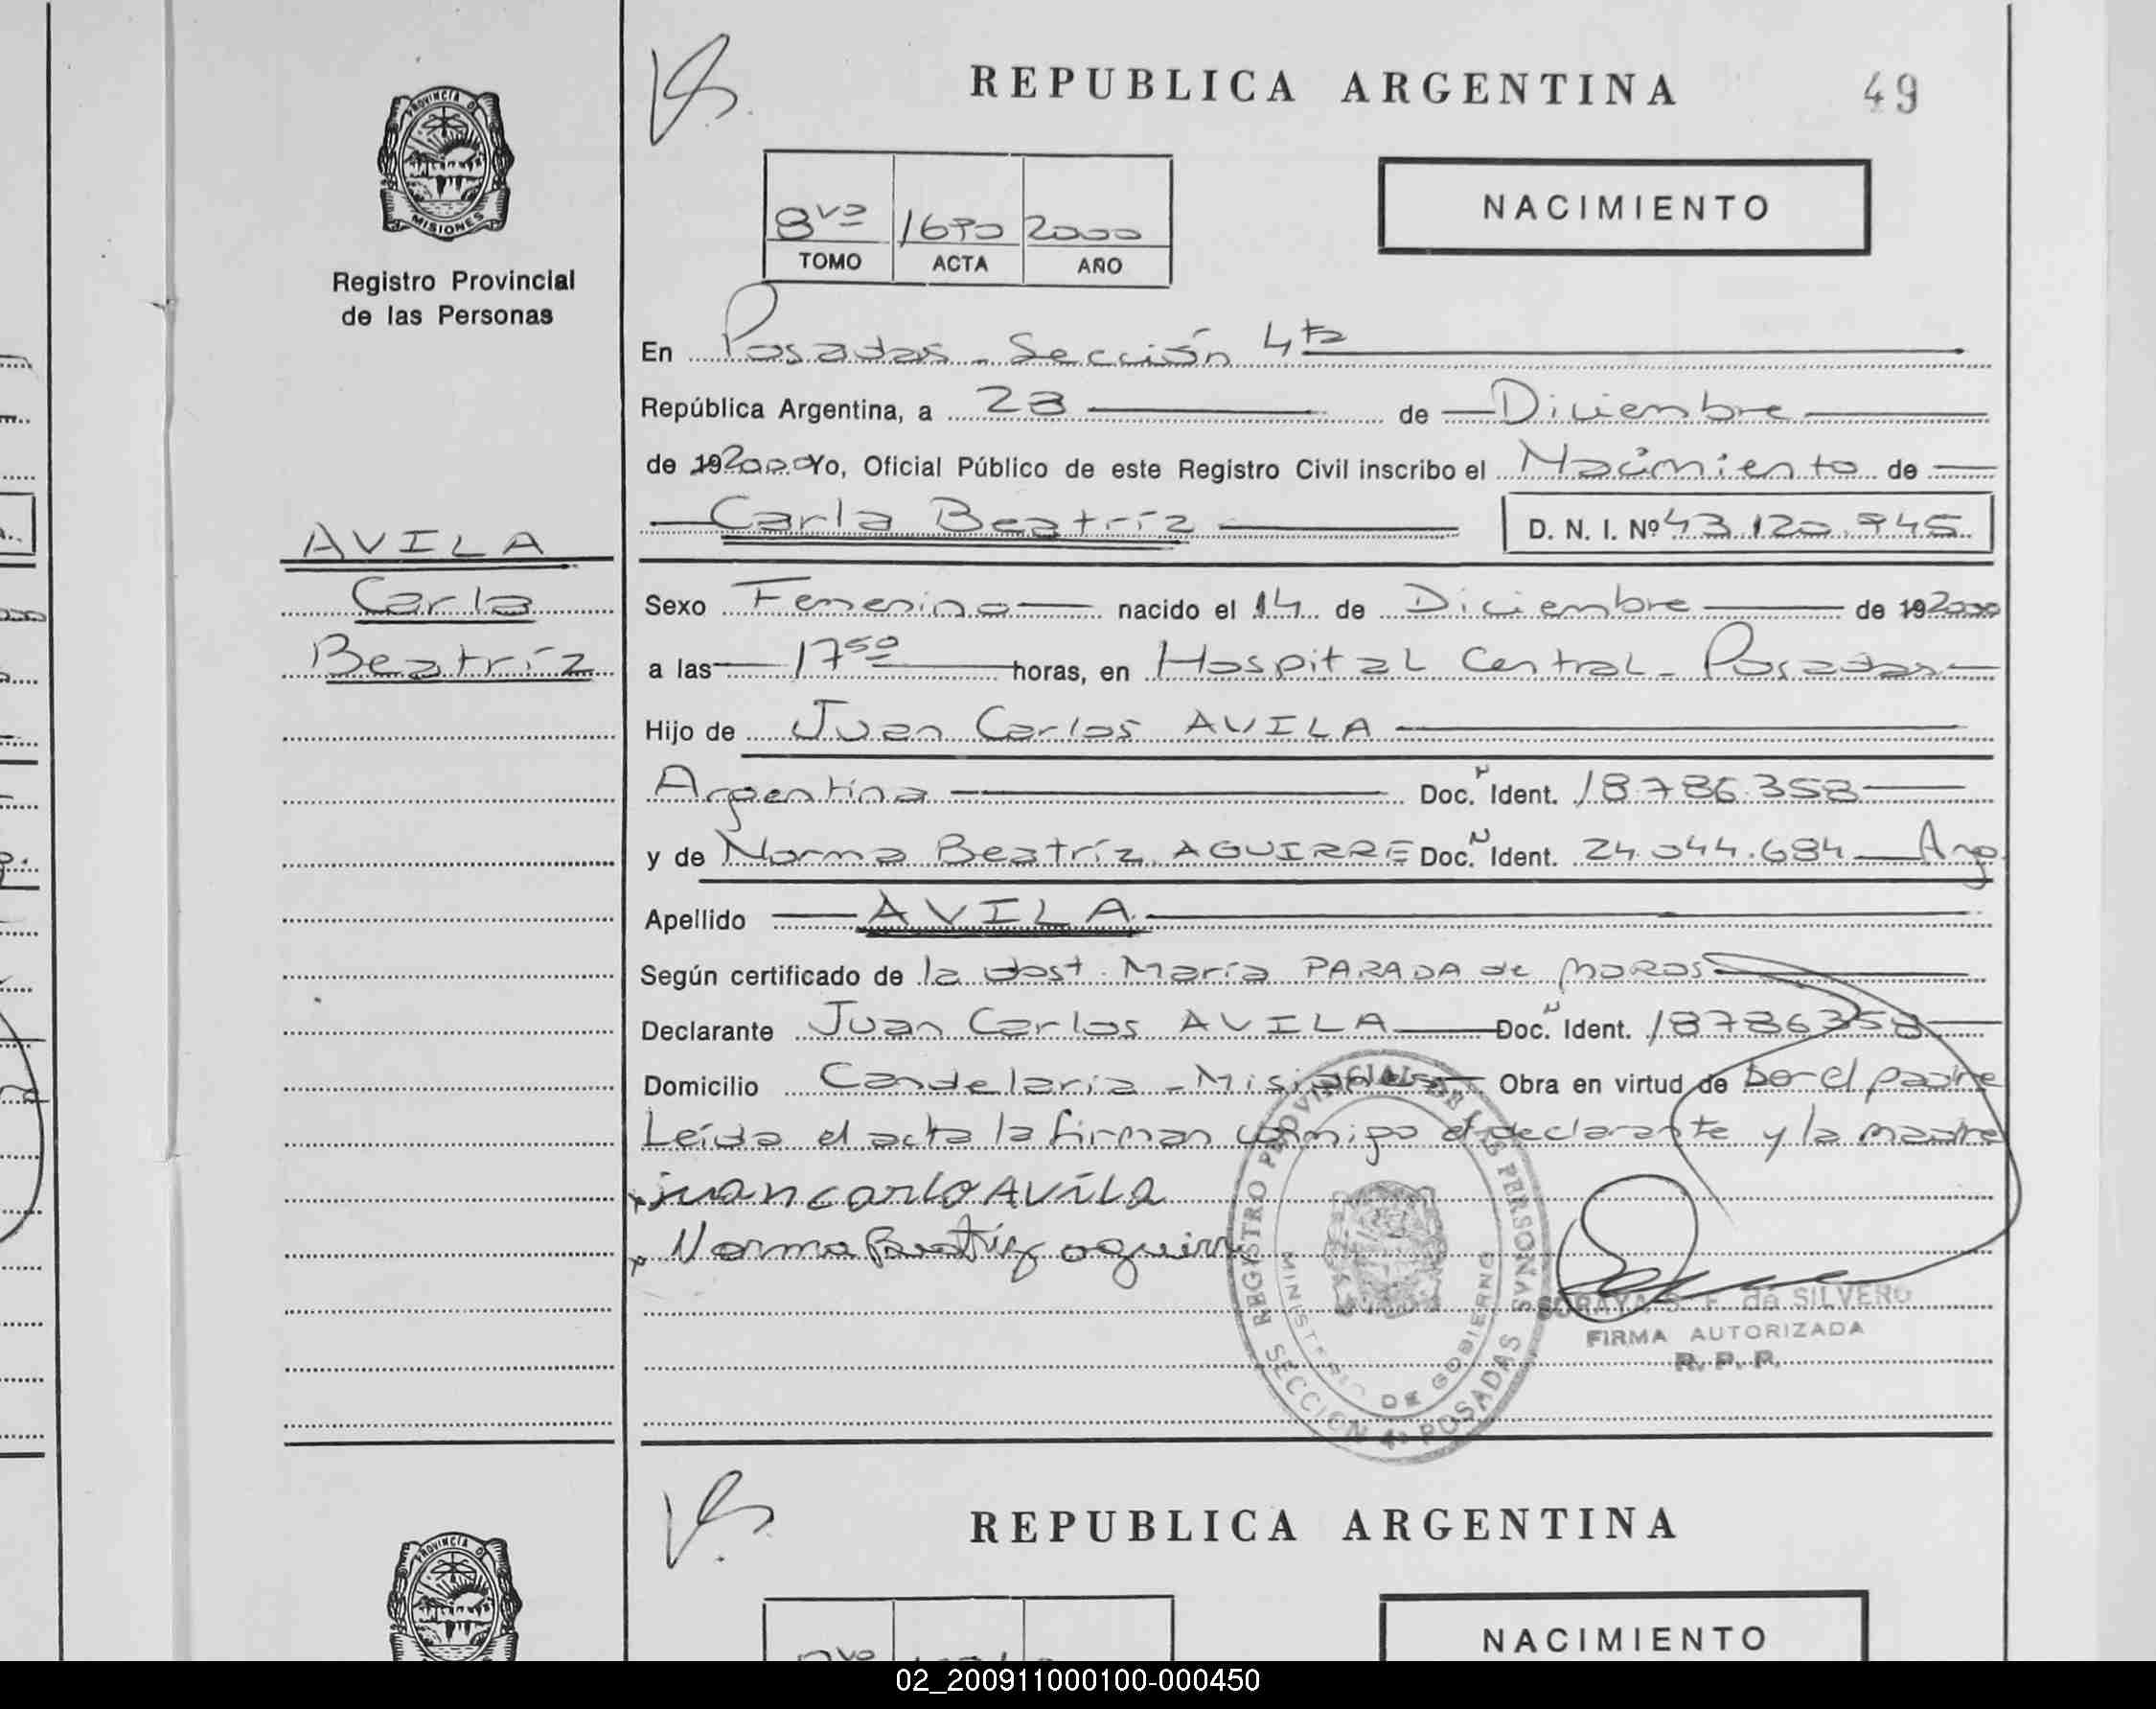 REPUBLICA ARGENTINA
49
PROVINCIA DE
MISIONES
Registro Provincial
de las Personas
NACIMIENTO
8va 2000
TOMO ACTA AÑO
En Posadas - Sección 4ta
República Argentina, a 28 de Diciembre
de 19 2000 Yo, Oficial Público de este Registro Civil inscribo el Nacimiento de
Carla Beatríz
D. N. I. Nº 43.120.945
AVILA
Carla
Beatríz
Sexo Femenino nacido el 14 de Diciembre de 19 2000
a las 17 50 horas, en Hospital Central - Posadas
Hijo de Juan Carlos AVILA
Argentina Doc. N Ident. 18786.358
y de Norma Beatríz AGUIRRE Doc. N Ident. 24.044.684 Arg.
Apellido AVILA
Según certificado de la obst. María PARADA de MOROS
Declarante Juan Carlos AVILA Doc. N Ident. 18786358
Domicilio Candelaria - Misiones Obra en virtud de por el padre
Leída el acta la firman conmigo el declarante y la madre
juan carlo AviLa
Norma Beatriz aguirre
REGISTRO PROVINCIAL DE LAS PERSONAS
MINISTERIO DE GOBIERNO
SECCION 4a POSADAS
SORAYA S. F. de SILVERO
FIRMA AUTORIZADA
R. P. P.
REPUBLICA ARGENTINA
PROVINCIA DE
NACIMIENTO
02_200911000100-000450